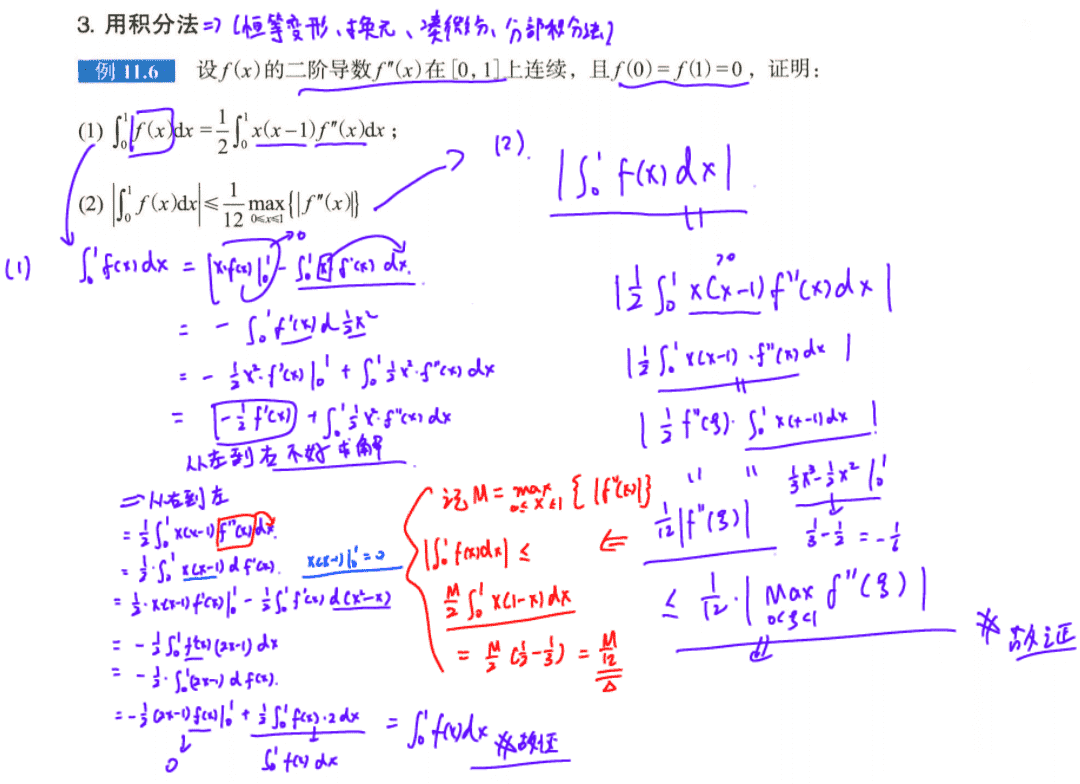 3. 用积分法⇒ (恒等变形、换元、凑微分、分部积分法)
例 11.6 设f(x)的二阶导数f″(x)在[0, 1]上连续，且f(0)=f(1)=0，证明：
(1) ∫₀¹f(x)dx=1/2∫₀¹x(x−1)f″(x)dx；
(2) |∫₀¹f(x)dx|≤1/12 max_{0≤x≤1}{|f″(x)|}
(1) ∫₀¹f(x)dx = x·f(x)|₀¹ - ∫₀¹ x f′(x) dx.
→0
= - ∫₀¹f′(x) d ½x²
= - ½x²·f′(x)|₀¹ + ∫₀¹½x²·f″(x) dx
= -½f′(x) + ∫₀¹½x²·f″(x) dx
从左到右不好求解
⇒从右到左
= ½∫₀¹ x(x-1) f″(x) dx.
= ½·∫₀¹ x(x-1) d f′(x). x(x-1)|₀¹=0
= ½·x(x-1)f′(x)|₀¹ - ½∫₀¹f′(x) d(x²-x)
= -½∫₀¹f′(x)(2x-1) dx
= -½·∫₀¹(2x-1) d f(x).
= -½(2x-1)f(x)|₀¹ + ½∫₀¹f(x)·2dx = ∫₀¹f(x)dx ※故证
0 ∫₀¹f(x) dx
记 M = max_{0≤x≤1}{|f″(x)|}
|∫₀¹f(x)dx| ≤
M/2 ∫₀¹x(1-x)dx
= M/2 (½-⅓) = M/12
(2).
|∫₀¹ f(x) dx|
|½∫₀¹ x(x-1) f″(x) dx|
|½∫₀¹ x(x-1)·f″(x) dx|
|½f″(ξ)·∫₀¹ x(x-1)dx|
⅓x³-½x²|₀¹
1/12|f″(ξ)| ⅓-½ = -1/6
≤ 1/12·|Max_{0<ξ<1} f″(ξ)|
※ 故证